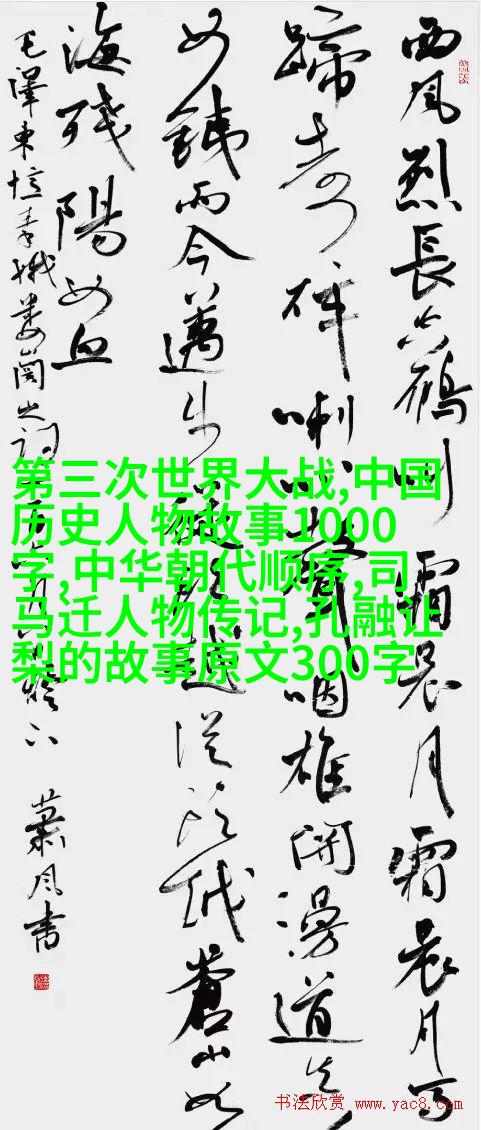 西风烈長空雁叫霜晨月霜晨月馬
蹄声碎喇叭聲咽雄関漫道真
如鐵而今邁步從頭越從頭越蒼山如
海残陽如血
毛澤東憶秦娥婁山関之詞
蕭风書
第三次世界大战,中国
历史人物故事1000
字,中华朝代顺序,司
马迁人物传记,孔融让
梨的故事原文300字
书法欣赏 www.yac8.com